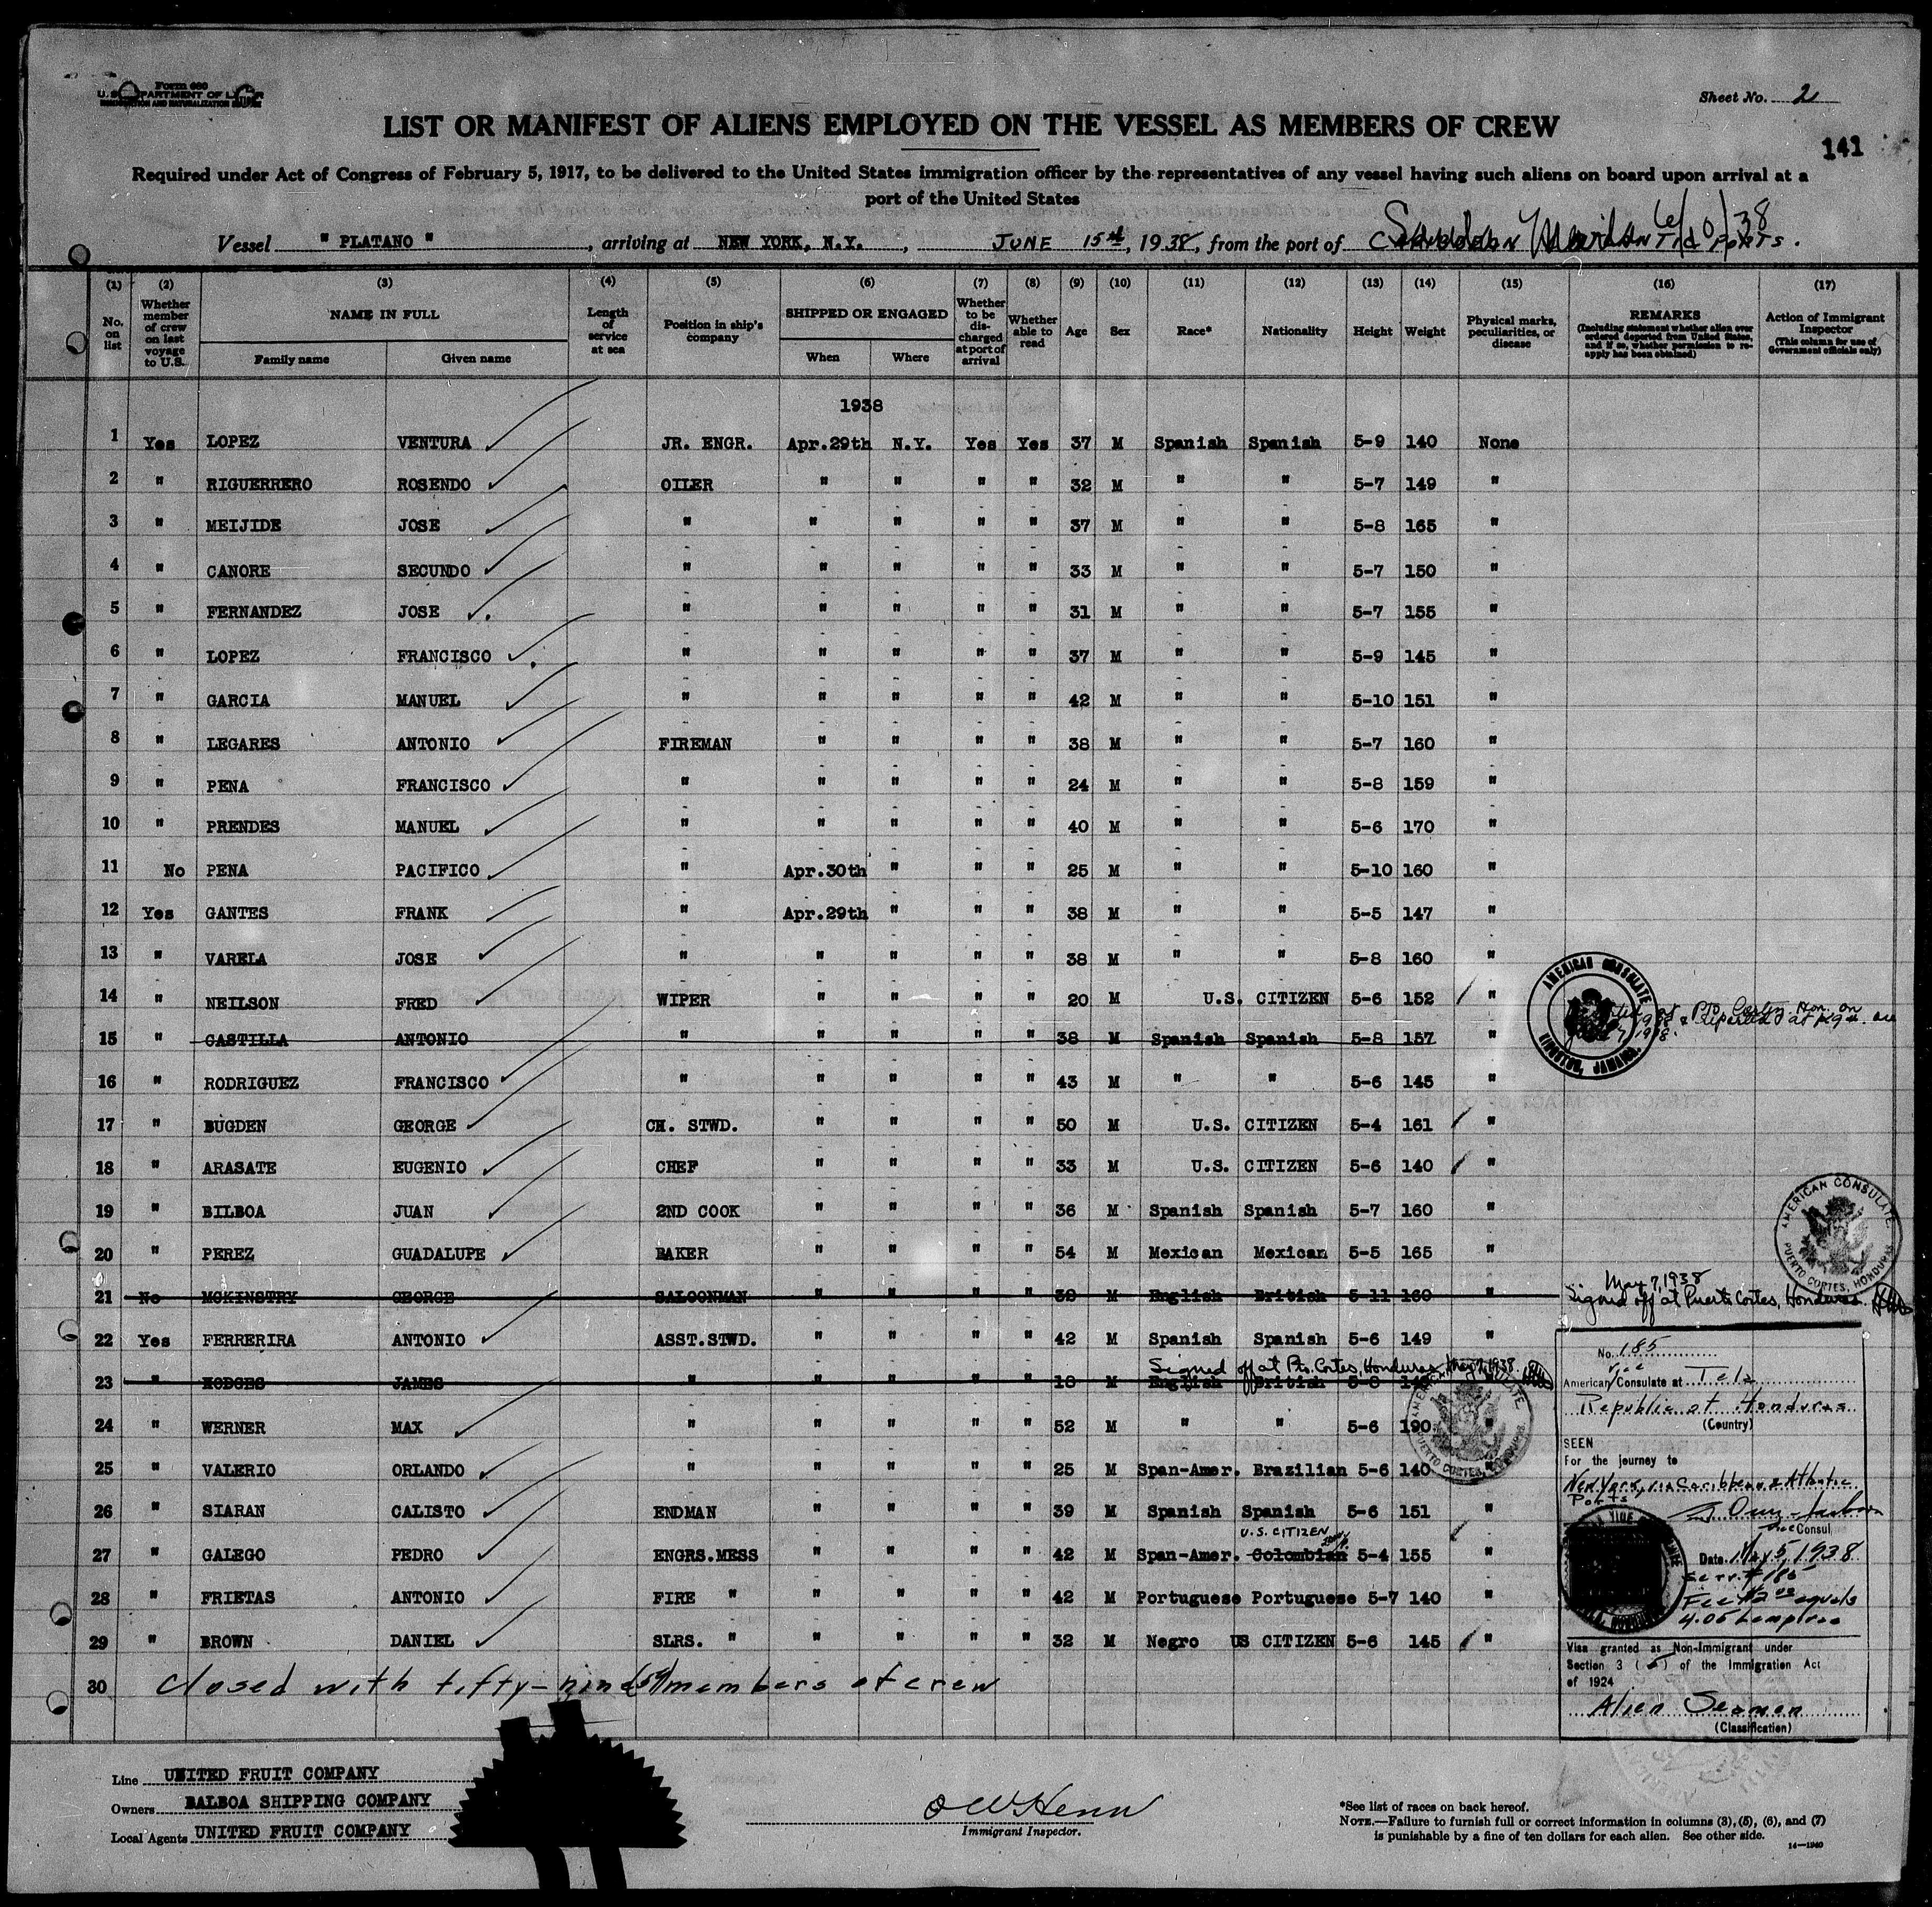 Form 680
U. S. DEPARTMENT OF LABOR
IMMIGRATION AND NATURALIZATION SERVICE
Sheet No. 2
LIST OR MANIFEST OF ALIENS EMPLOYED ON THE VESSEL AS MEMBERS OF CREW
141
Required under Act of Congress of February 5, 1917, to be delivered to the United States immigration officer by the representatives of any vessel having such aliens on board upon arrival at a
port of the United States
Vessel " PLATANO ", arriving at NEW YORK, N.Y., JUNE 15th, 1938, from the port of
(1) (2) (3) (4) (5) (6) (7) (8) (9) (10) (11) (12) (13) (14) (15) (16) (17)
No. on list
Whether member of crew on last voyage to U.S.
NAME IN FULL
Family name Given name
Length of service at sea
Position in ship's company
SHIPPED OR ENGAGED
When Where
Whether to be discharged at port of arrival
Whether able to read
Age Sex Race* Nationality Height Weight
Physical marks, peculiarities, or disease
REMARKS
(Including statement whether alien ever ordered deported from United States, and if so, whether permission to reapply has been obtained)
Action of Immigrant Inspector
(This column for use of Government officials only)
1938
1 Yes LOPEZ VENTURA JR. ENGR. Apr.29th N.Y. Yes Yes 37 M Spanish Spanish 5-9 140 None
2 " RIGUERRERO ROSENDO OILER " " " " 32 M " " 5-7 149 "
3 " MEIJIDE JOSE " " " " " 37 M " " 5-8 165 "
4 " CANORE SECUNDO " " " " " 33 M " " 5-7 150 "
5 " FERNANDEZ JOSE " " " " " 31 M " " 5-7 155 "
6 " LOPEZ FRANCISCO " " " " " 37 M " " 5-9 145 "
7 " GARCIA MANUEL " " " " " 42 M " " 5-10 151 "
8 " LEGARES ANTONIO FIREMAN " " " " 38 M " " 5-7 160 "
9 " PENA FRANCISCO " " " " " 24 M " " 5-8 159 "
10 " PRENDES MANUEL " " " " " 40 M " " 5-6 170 "
11 No PENA PACIFICO " Apr.30th " " " 25 M " " 5-10 160 "
12 Yes GANTES FRANK " Apr.29th " " " 38 M " " 5-5 147 "
13 " VARELA JOSE " " " " " 38 M " " 5-8 160 "
14 " NEILSON FRED WIPER " " " " 20 M U.S. CITIZEN 5-6 152 "
15 " CASTILLA ANTONIO " " " " " 38 M Spanish Spanish 5-8 157 "
AMERICAN CONSULATE
KINGSTON, JAMAICA.
16 " RODRIGUEZ FRANCISCO " " " " " 43 M " " 5-6 145 "
17 " BUGDEN GEORGE CH. STWD. " " " " 50 M U.S. CITIZEN 5-4 161 "
18 " ARASATE EUGENIO CHEF " " " " 33 M U.S. CITIZEN 5-6 140 "
19 " BILBOA JUAN 2ND COOK " " " " 36 M Spanish Spanish 5-7 160 "
20 " PEREZ GUADALUPE BAKER " " " " 54 M Mexican Mexican 5-5 165 "
AMERICAN CONSULATE
PUERTO CORTES, HONDURAS
21 No MCKINSTRY GEORGE SALOONMAN " " " " 39 M English British 5-11 160 "
May 7, 1938
Signed off at Puerto Cortes, Honduras.
22 Yes FERRERIRA ANTONIO ASST.STWD. " " " " 42 M Spanish Spanish 5-6 149 "
Signed off at Pto. Cortes, Honduras, May 7, 1938.
23 " HODGES JAMES " " " " " 18 M English British 5-8
24 " WERNER MAX " " " " " 52 M " " 5-6 190 "
25 " VALERIO ORLANDO " " " " " 25 M Span-Amer. Brazilian 5-6 140 "
26 " SIARAN CALISTO ENDMAN " " " " 39 M Spanish Spanish 5-6 151 "
U.S. CITIZEN
27 " GALEGO PEDRO ENGRS.MESS " " " " 42 M Span-Amer. Colombian 5-4 155 "
28 " FRIETAS ANTONIO FIRE " " " " " 42 M Portuguese Portuguese 5-7 140 "
29 " BROWN DANIEL SLRS. " " " " " 32 M Negro US CITIZEN 5-6 145 "
30 Closed with fifty-nine (59) members of crew
No. 185
American Vice Consulate at Tela
Republic of Honduras
(Country)
SEEN
For the journey to
New York, via Caribbean & Atlantic
Ports
Vice Consul
Date May 5, 1938
Serv. # 185
Fee $2.00 equals
4.05 Lempiras
Visa granted as Non-Immigrant under
Section 3 (5) of the Immigration Act
of 1924
Alien Seamen
(Classification)
Line UNITED FRUIT COMPANY
Owners BALBOA SHIPPING COMPANY
Local Agents UNITED FRUIT COMPANY
Immigrant Inspector.
*See list of races on back hereof.
NOTE.—Failure to furnish full or correct information in columns (3), (5), (6), and (7)
is punishable by a fine of ten dollars for each alien. See other side.
14—1940